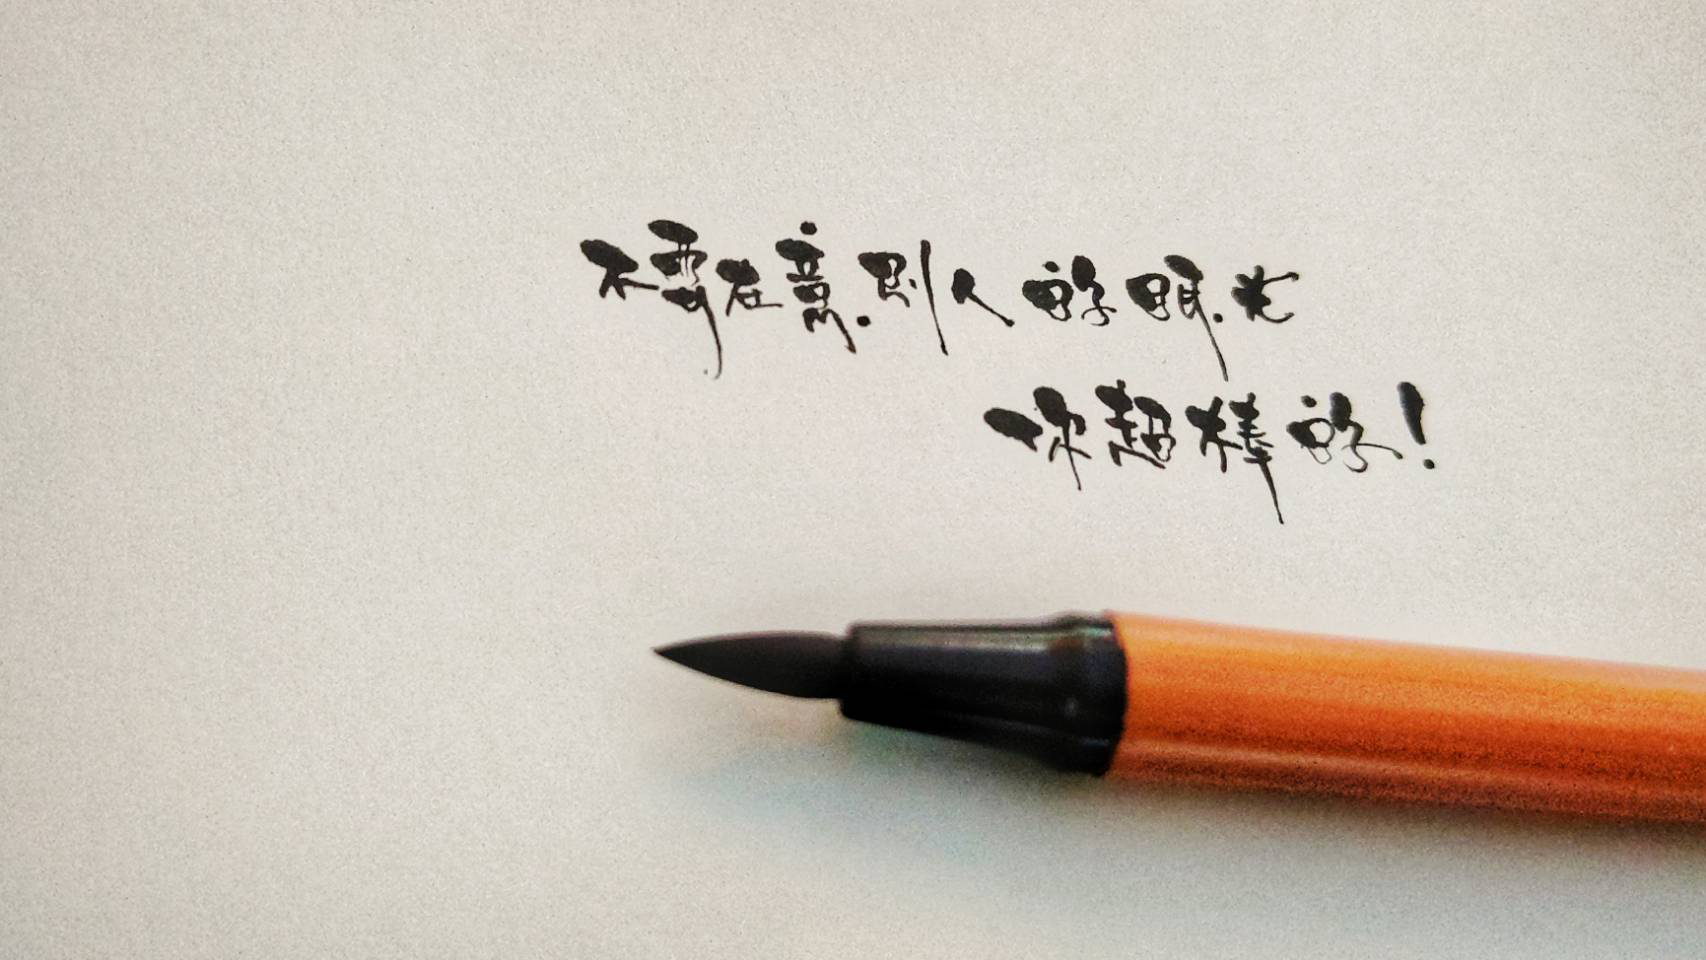 不要在意別人的眼光
你超棒的!